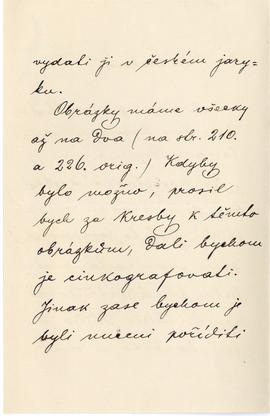 vydati ji v českém jazy-
ku.
Obrázky máme všecky
až na dva (na str. 210.
a 226. orig.) Kdyby
bylo možno, prosil
bych za kresby k těmto
obrázkům, dali bychom
je cinkografovati.
Jinak zase bychom je
byli nuceni poříditi